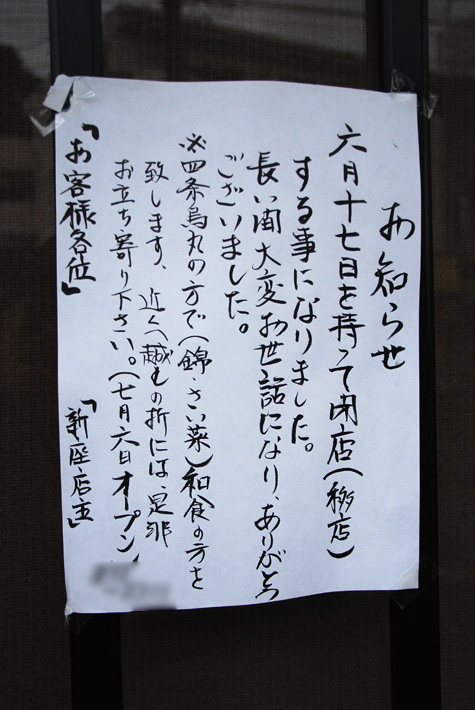 お知らせ
六月十七日を持って閉店(移店)
する事になりました。
長い間大変お世話になり、ありがとう
ございました。
※四条烏丸の方で(錦・さい菜)和食の方を
致します、近くへ越しの折には是非
お立ち寄り下さい。(七月六日オープン)
「お客様各位」
「新座店主」